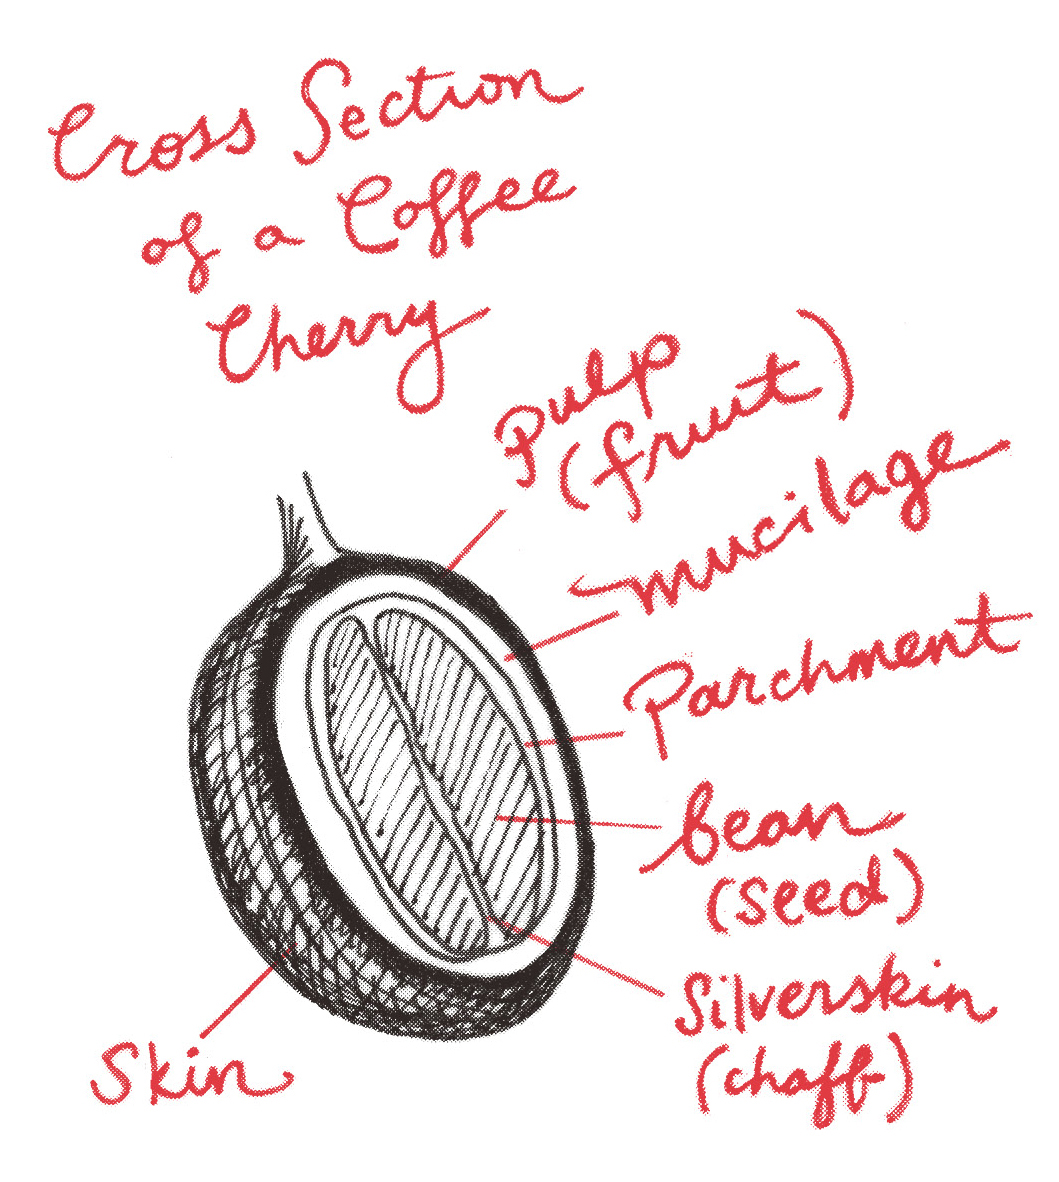 Cross Section
of a Coffee
Cherry
Pulp
(fruit)
mucilage
Parchment
bean
(seed)
Silverskin
(chaff)
Skin